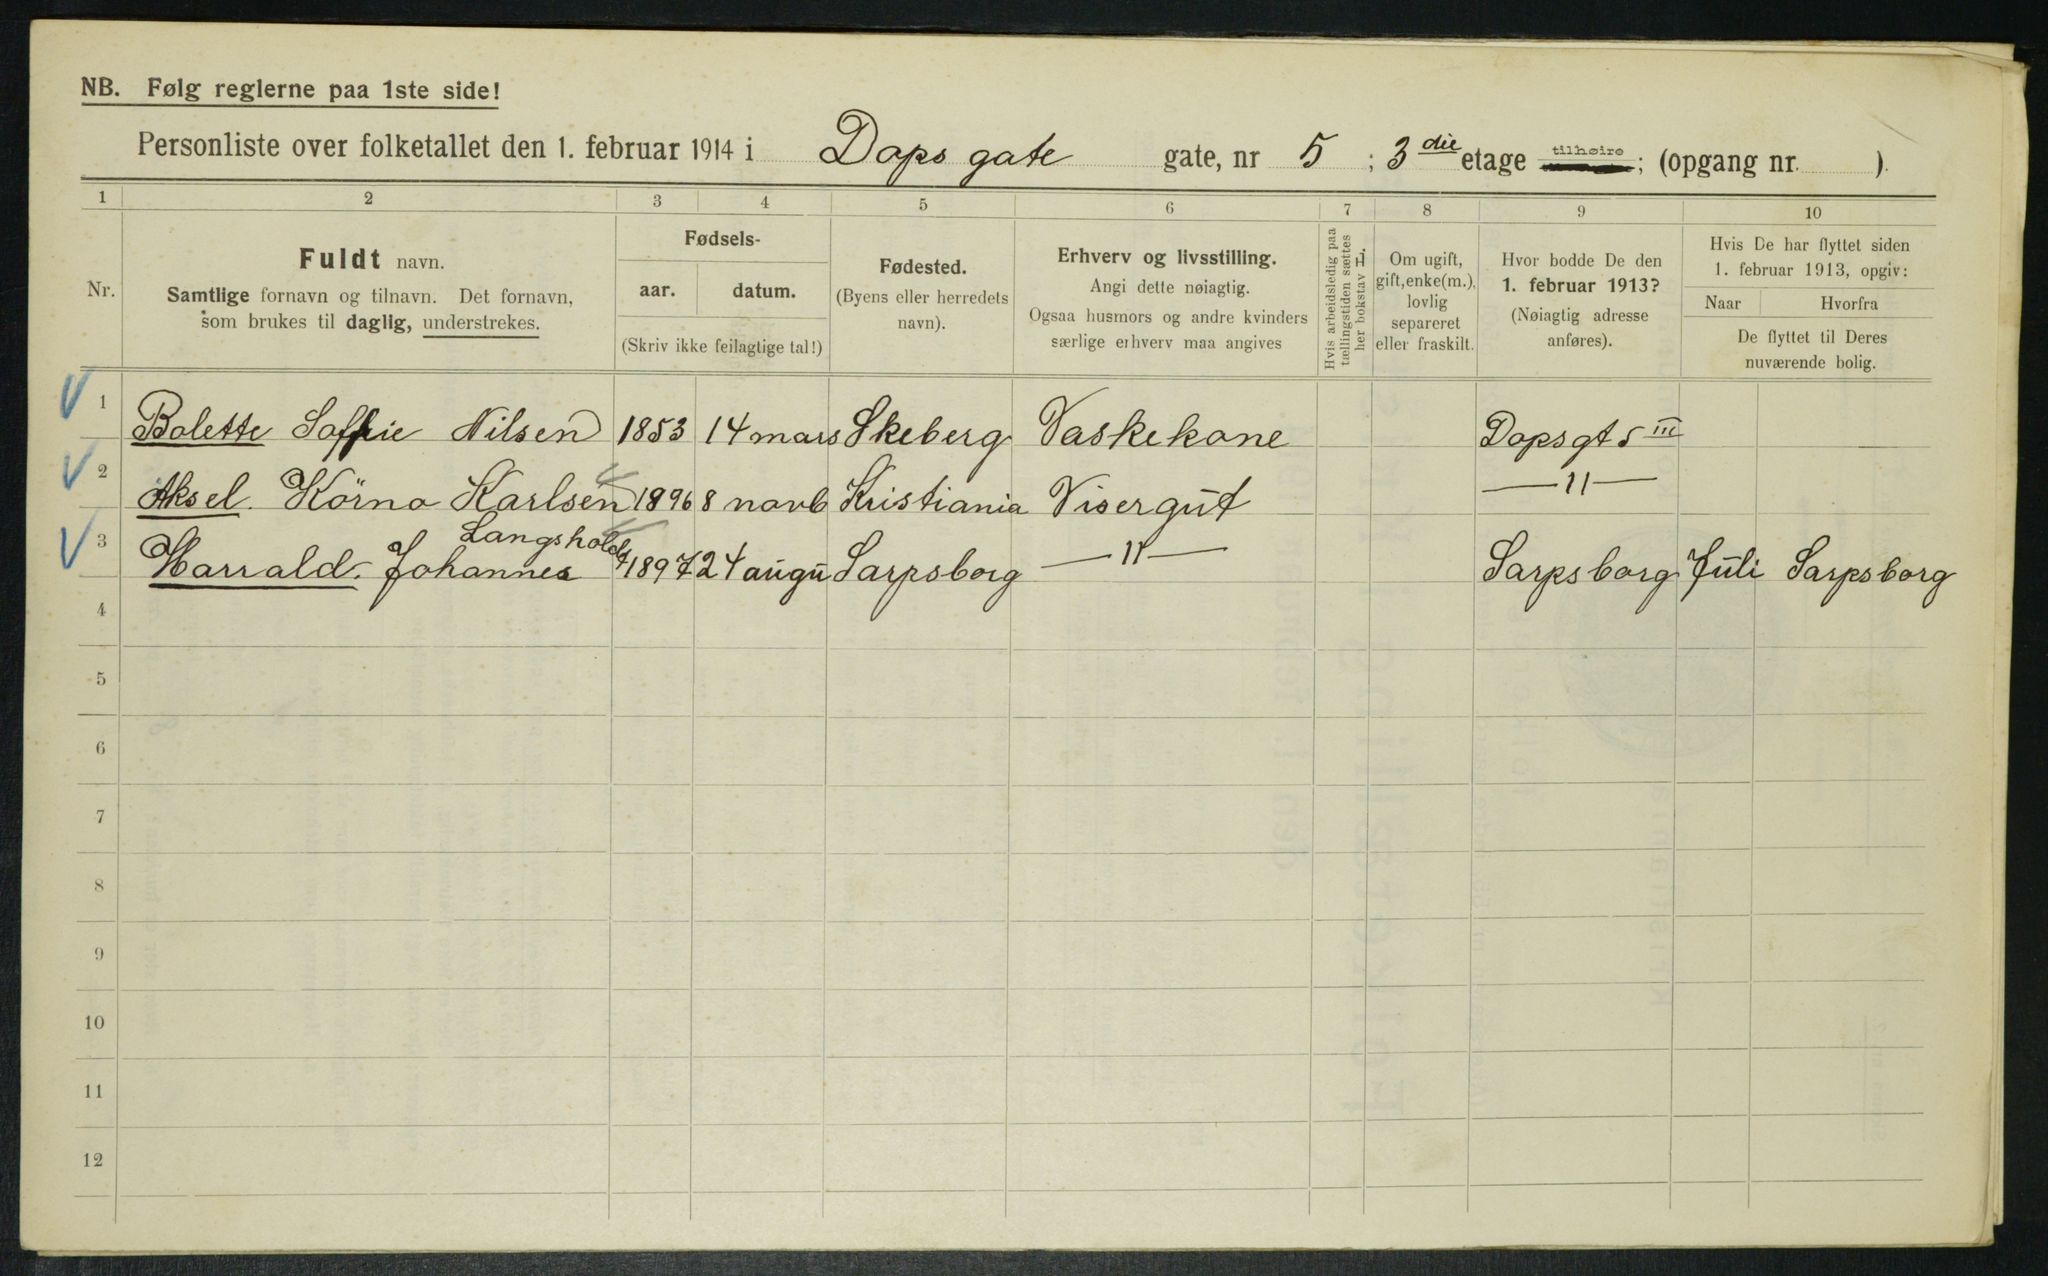 NB. Følg reglerne paa 1ste side!
Personliste over folketallet den 1. februar 1914 i Daps gate gate, nr 5 ; 3 die etage tilhøire; (opgang nr. ).
1 2 3 4 5 6 7 8 9 10
Nr.
Fuldt navn.
Samtlige fornavn og tilnavn. Det fornavn,
som brukes til daglig, understrekes.
Fødsels-
aar. datum.
(Skriv ikke feilagtige tal!)
Fødested.
(Byens eller herredets
navn).
Erhverv og livsstilling.
Angi dette nøiagtig.
Ogsaa husmors og andre kvinders
særlige erhverv maa angives
Hvis arbeidsledig paa
tællingstiden sættes
her bokstav L.
Om ugift,
gift, enke(m.),
lovlig
separeret
eller fraskilt.
Hvor bodde De den
1. februar 1913?
(Nøiagtig adresse
anføres).
Hvis De har flyttet siden
1. februar 1913, opgiv:
Naar Hvorfra
De flyttet til Deres
nuværende bolig.
1 Bolette Soffie Nilsen 1853 14 mars Skeberg Vaskekone Dapsgt 5 III
2 Aksel. Körno Karlsen 1896 8 novb Kristiania Visergut —11—
Langsholdt
3 Harrald. Johannes 1897 24 augu Sarpsborg —11— Sarpsborg Juli Sarpsborg
4
5
6
7
8
9
10
11
12